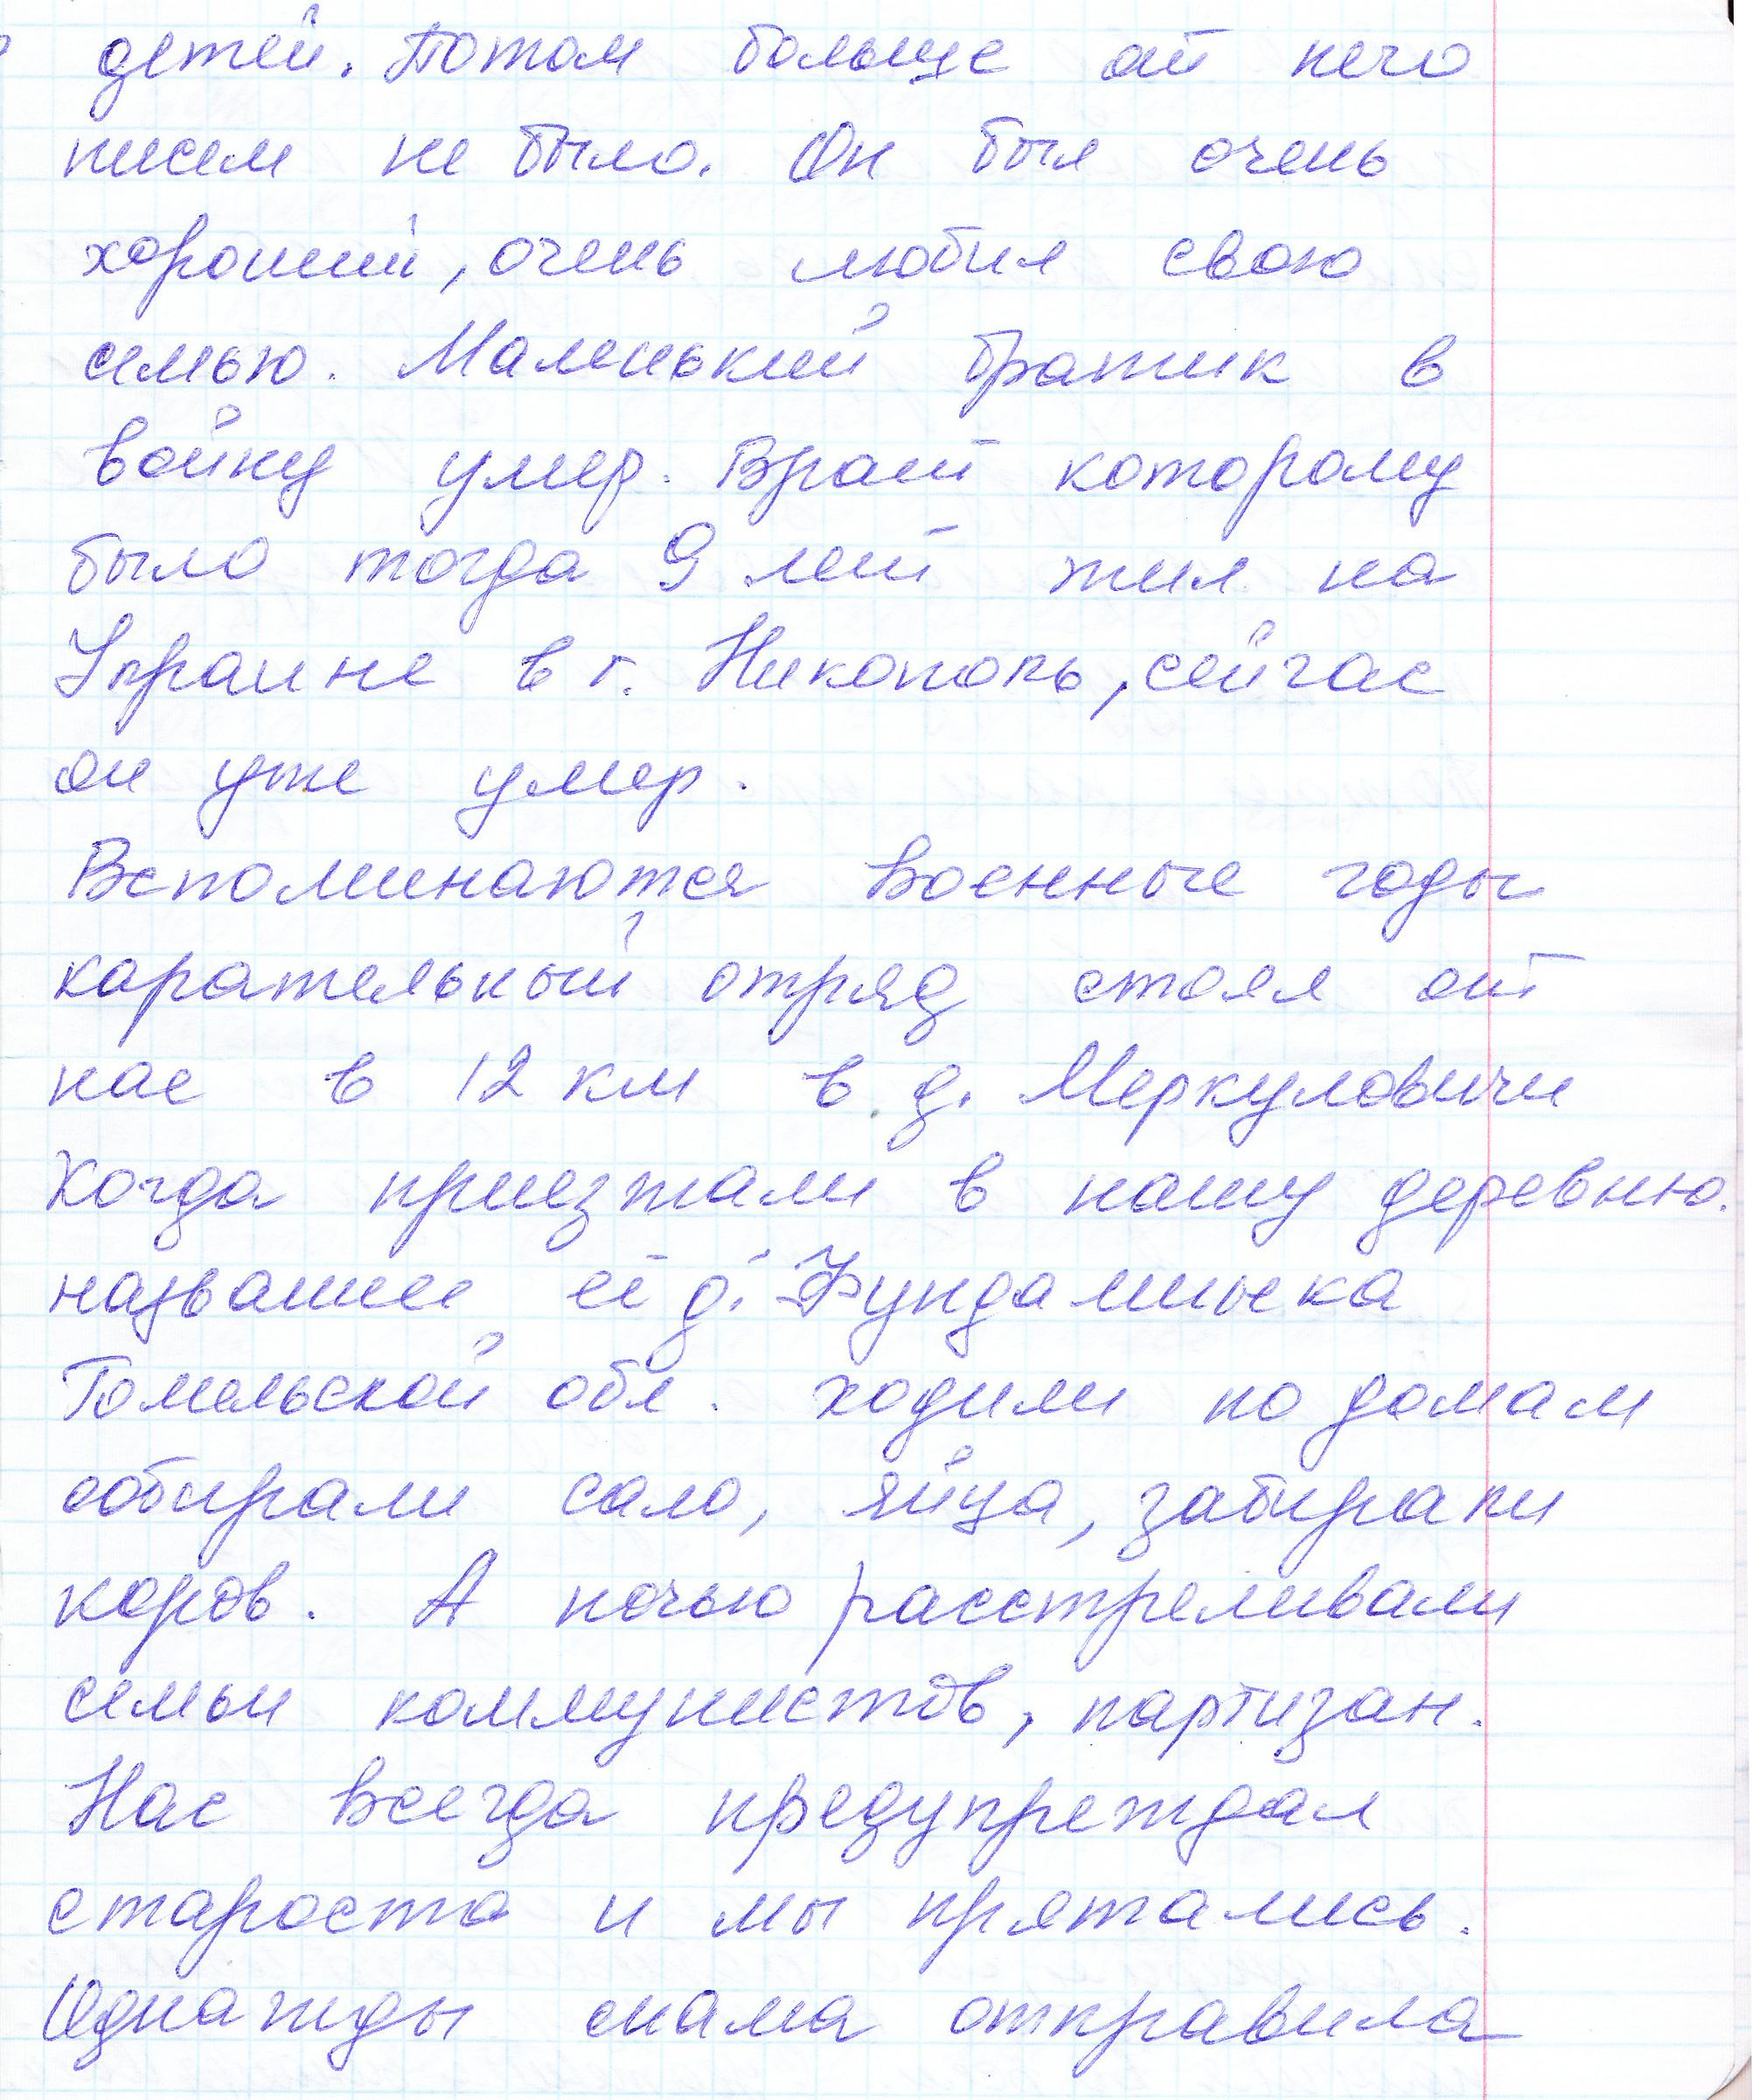 детей. Потом больше от него
писем не было. Он был очень
хороший, очень любил свою
семью. Маленький братик в
войну умер. Брат которому
было тогда 9 лет жил на
Украине в г. Никополь, сейчас
он уже умер.
Вспоминаются военные годы
карательный отряд стоял от
нас в 12 км в д. Меркуловичи
Когда приезжали в нашу деревню.
название её д. Фундаминка
Гомельской обл. ходили по домам
собирали сало, яйца, забирали
коров. А ночью расстреливали
семьи коммунистов, партизан.
Нас всегда предупреждал
староста и мы прятались.
Однажды мама отправила